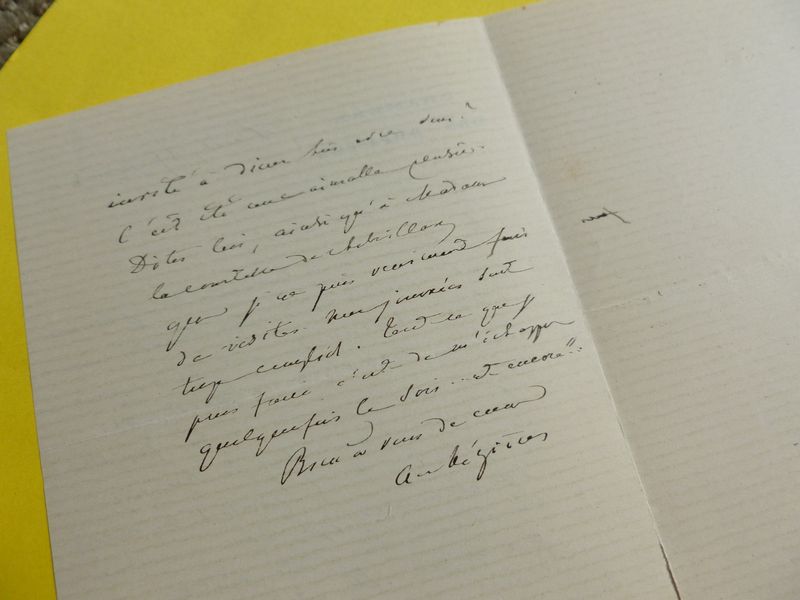 invité à diner chez vous?
C'eut été une aimable pensée.
Dites lui, ainsi qu'à Madame
la comtesse de Chabrillan,
que je ne puis vraiment faire
de visites. Mes journées sont
trop remplies. Tout ce que je
puis faire c'est de m'échapper
quelquefois le soir.. et encore!!.
Bien à vous de cœur